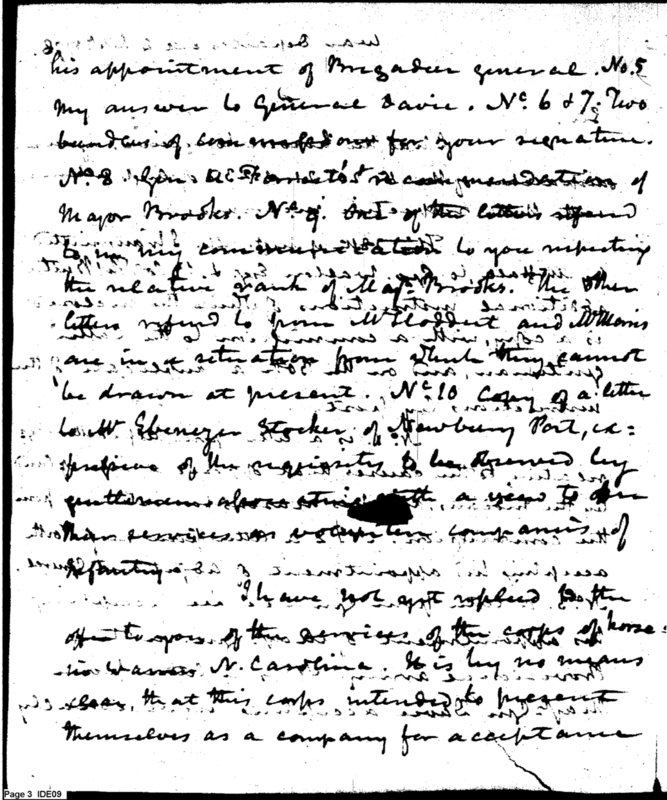 his appointment of Brigadier general. No. 5
my answer to General Davie. No. 6 & 7. Two
bundles of commissions for your signature.
No. 8 Gen recommendation of
Major Brooks. No. 9. One of the letters referred
to in my communication to you respecting
the relative rank of Majr. Brooks. The other
letters referred to from Mr Stoddert and Mr Morris
are in a situation from which they cannot
be drawn at present. No. 10 Copy of a letter
to Mr Ebenezer Stocker of Newbury Port, ex=
pressive of the requisites to be observed by
gentlemen associating with a view to offer
their services as volunteer companies of
Infantry.
I have not yet replied to the
offer to you of the services of the corps of horse
in Warren N. Carolina. It is by no means
clear, that this corps intended to present
themselves as a company for acceptance
Page 3 IDE09